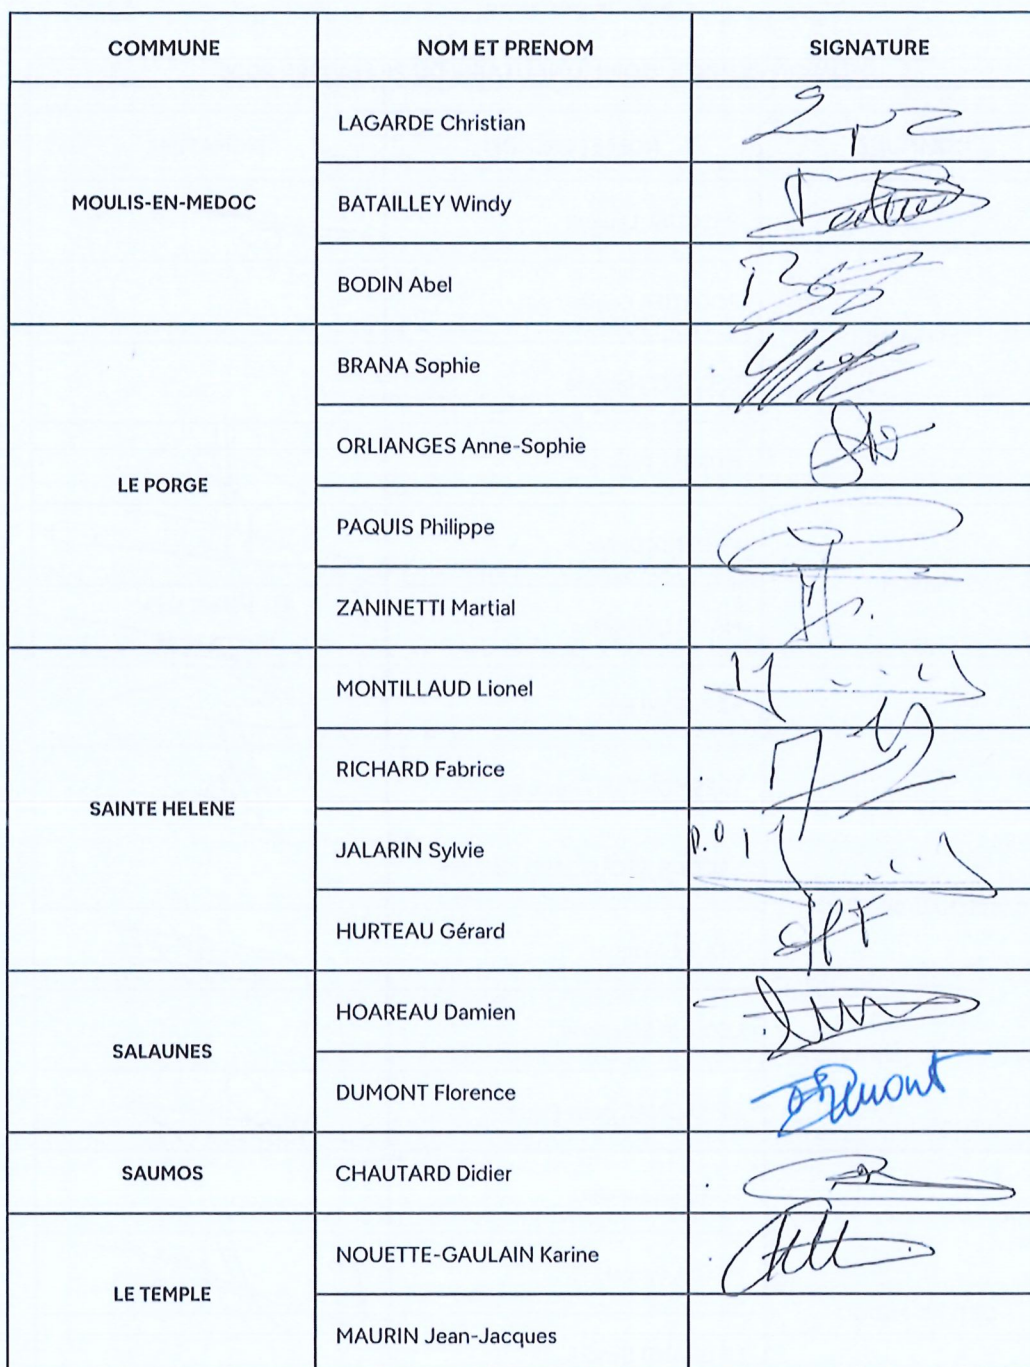 COMMUNE NOM ET PRENOM SIGNATURE
MOULIS-EN-MEDOC
LAGARDE Christian
BATAILLEY Windy
BODIN Abel
LE PORGE
BRANA Sophie
ORLIANGES Anne-Sophie
PAQUIS Philippe
ZANINETTI Martial
SAINTE HELENE
MONTILLAUD Lionel
RICHARD Fabrice
JALARIN Sylvie P.O
HURTEAU Gérard
SALAUNES
HOAREAU Damien
DUMONT Florence Dumont
SAUMOS
CHAUTARD Didier
LE TEMPLE
NOUETTE-GAULAIN Karine
MAURIN Jean-Jacques